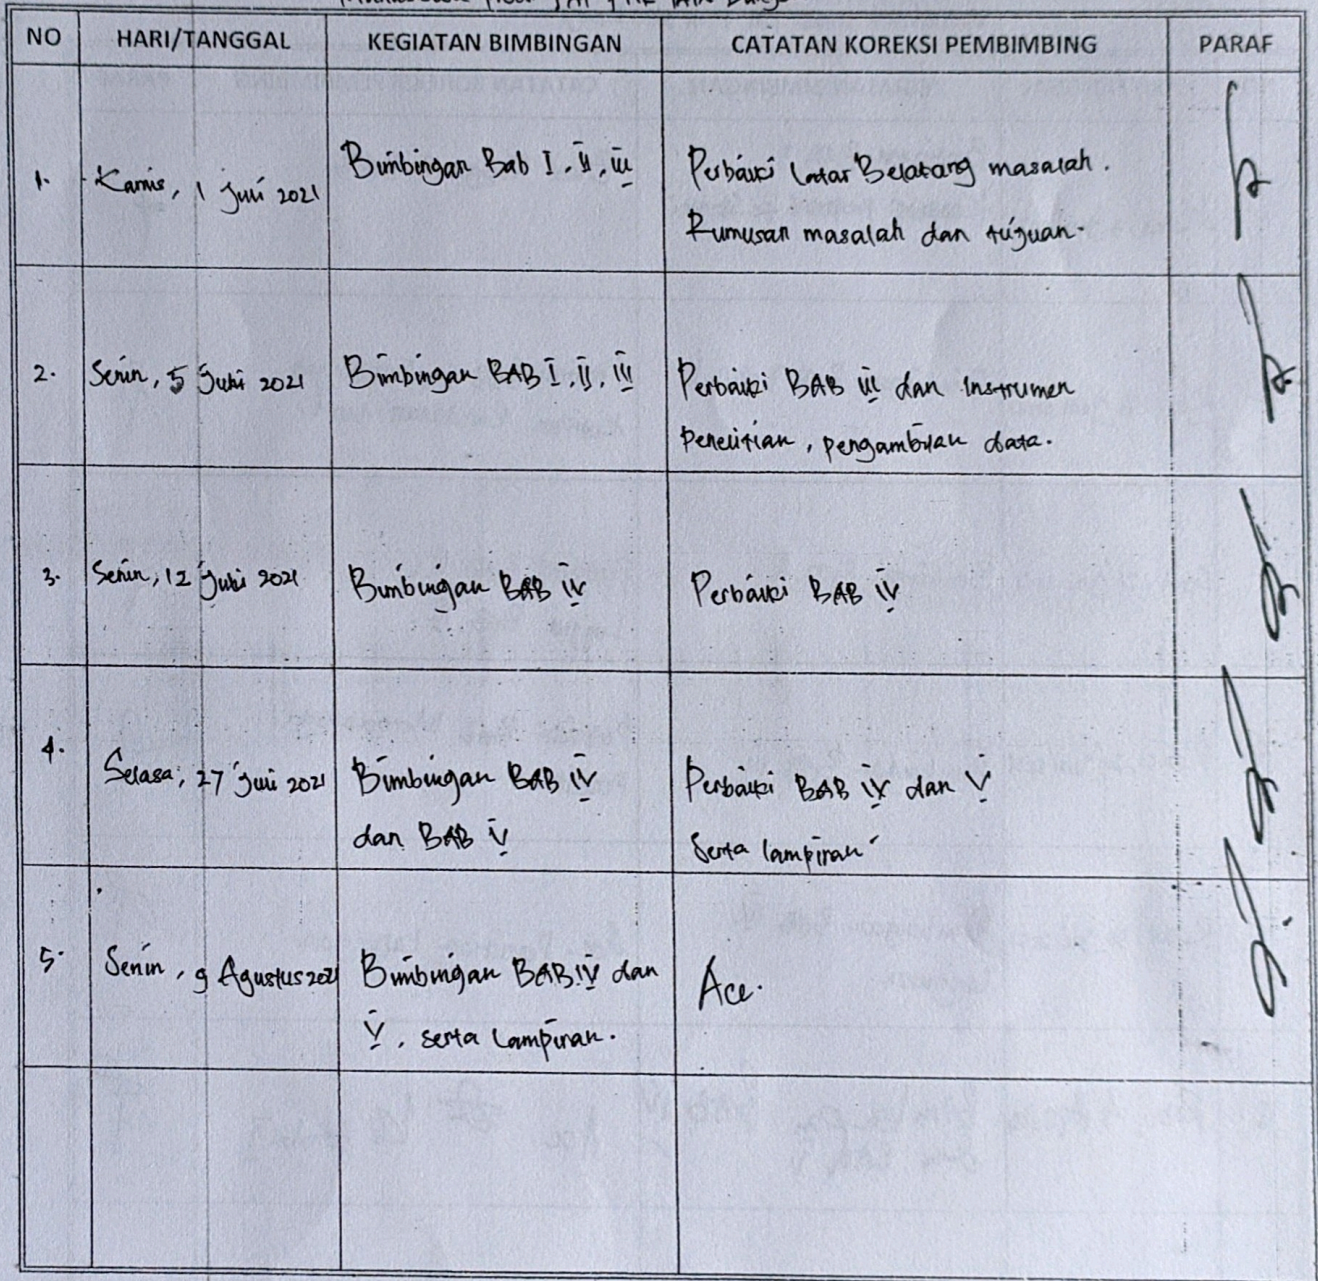 NO HARI/TANGGAL KEGIATAN BIMBINGAN CATATAN KOREKSI PEMBIMBING PARAF
1. Kamis, 1 Juli 2021 Bimbingan Bab I, II, III Perbaiki Latar Belakang masalah.
Rumusan masalah dan tujuan.
2. Senin, 5 Juli 2021 Bimbingan BAB I, II, III Perbaiki BAB III dan Instrumen
Penelitian, pengambilan data.
3. Senin, 12 Juli 2021 Bimbingan BAB IV Perbaiki BAB IV
4. Selasa, 27 Juli 2021 Bimbingan BAB IV Perbaiki BAB IV dan V
dan BAB V Serta lampiran
5. Senin, 9 Agustus 2021 Bimbingan BAB IV dan Acc.
V, serta Lampiran.